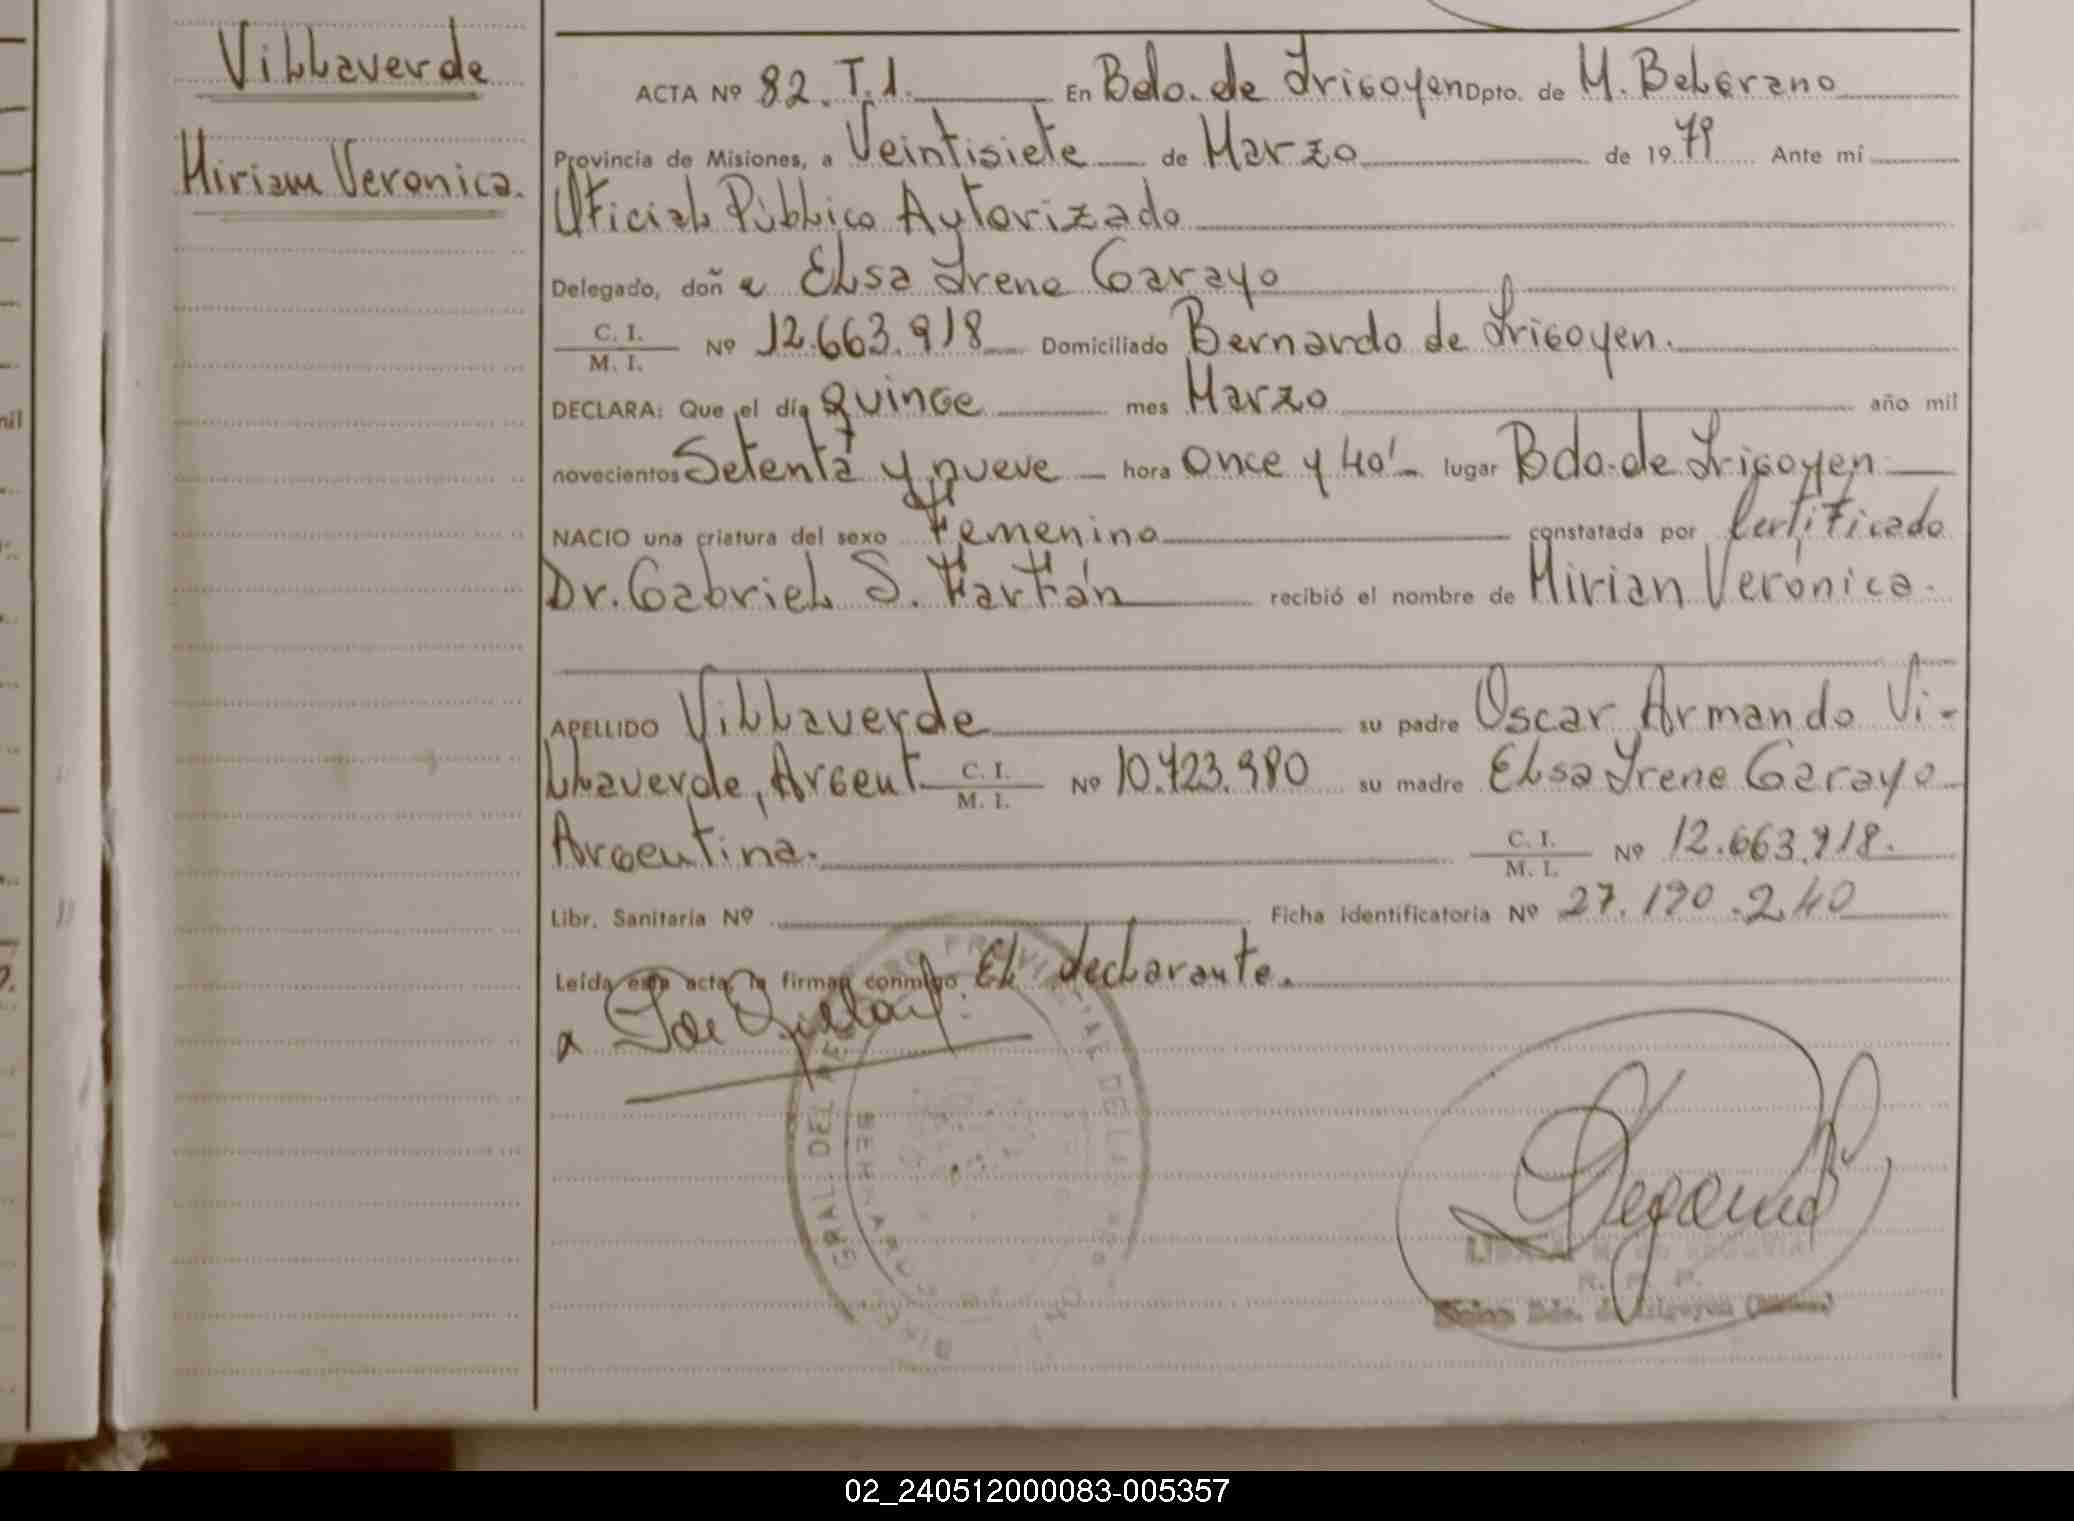 Villaverde
Miriam Veronica.
ACTA Nº 82. T.1. En Bdo. de Irigoyen Dpto. de M. Belgrano
Provincia de Misiones, a Veintisiete de Marzo de 1979 Ante mí
Oficial Público Autorizado
Delegado, doña Elsa Irene Garayo
C. I. / M. I. Nº 12.663.918 Domiciliado Bernardo de Irigoyen.
DECLARA: Que el día quince mes Marzo año mil
novecientos Setenta y nueve hora once y 40' lugar Bdo. de Irigoyen
NACIO una criatura del sexo Femenino constatada por Certificado
Dr. Gabriel S. recibió el nombre de Mirian Verónica.
APELLIDO Villaverde su padre Oscar Armando Vi-
llaverde, Argent C. I. / M. I. Nº 10.423.980 su madre Elsa Irene Garayo
Argentina. C. I. / M. I. Nº 12.663.918.
Libr. Sanitaria Nº Ficha identificatoria Nº 27.190.240
Leída esta acta, la firman conmigo El declarante.
02_240512000083-005357